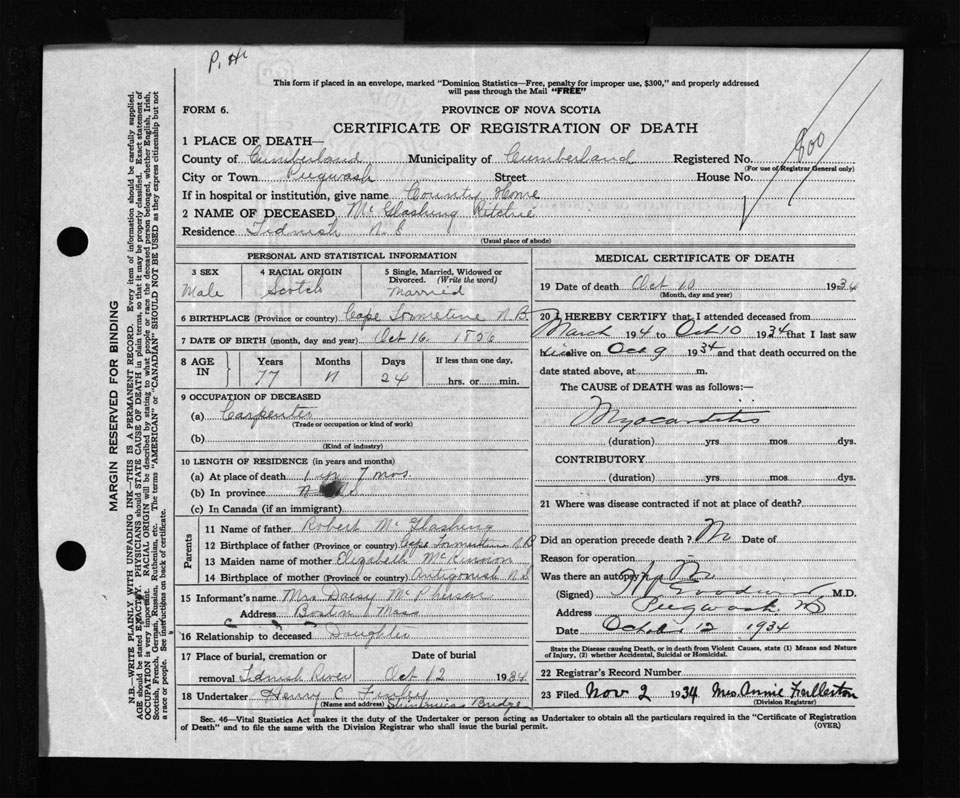 P. H.
This form if placed in an envelope, marked "Dominion Statistics—Free, penalty for improper use, $300," and properly addressed
will pass through the Mail "FREE"
FORM 6.
PROVINCE OF NOVA SCOTIA
CERTIFICATE OF REGISTRATION OF DEATH
1 PLACE OF DEATH—
County of Cumberland Municipality of Cumberland Registered No. 800
(For use of Registrar General only)
City or Town Pugwash Street House No.
If in hospital or institution, give name County Home
2 NAME OF DECEASED McGlashing Ritchie
Residence Tidnish N.S.
(Usual place of abode)
PERSONAL AND STATISTICAL INFORMATION
3 SEX Male
4 RACIAL ORIGIN Scotch
5 Single, Married, Widowed or Divorced. (Write the word) Married
6 BIRTHPLACE (Province or country) Cape Tormetine N.B.
7 DATE OF BIRTH (month, day and year) Oct 16. 1856
8 AGE IN
Years Months Days If less than one day,
77 11 24 hrs. or min.
9 OCCUPATION OF DECEASED
(a) Carpenter
(Trade or occupation or kind of work)
(b)
(Kind of industry)
10 LENGTH OF RESIDENCE (in years and months)
(a) At place of death 1 yr 7 mos.
(b) In province
(c) In Canada (if an immigrant)
Parents
11 Name of father Robert McGlashing
12 Birthplace of father (Province or country) Cape Tormentine N.B
13 Maiden name of mother Elizabeth McKinnon
14 Birthplace of mother (Province or country) Antigonish N.S
15 Informant's name Mrs Daisy McPherson
Address Boston Mass
16 Relationship to deceased Daughter
17 Place of burial, cremation or Date of burial
removal Tidnish River Oct 12 1934
18 Undertaker Henry C
(Name and address) Bridge
MEDICAL CERTIFICATE OF DEATH
19 Date of death Oct 10 1934
(Month, day and year)
20 I HEREBY CERTIFY that I attended deceased from
March 1934 to Oct 10 1934 that I last saw
him alive on Oct 9 1934 and that death occurred on the
date stated above, at m.
The CAUSE of DEATH was as follows:—
Myocarditis
(duration) yrs. mos. dys.
CONTRIBUTORY
(duration) yrs mos dys.
21 Where was disease contracted if not at place of death?
Did an operation precede death? No Date of
Reason for operation
Was there an autopsy No
(Signed) Goodwin M.D.
Address Pugwash, NS
Date October 12 1934
State the Disease causing Death, or in death from Violent Causes, state (1) Means and Nature
of Injury, (2) whether Accidental, Suicidal or Homicidal.
22 Registrar's Record Number
23 Filed Nov 2 1934 Mrs. Annie Fullerton
(Division Registrar)
Sec. 46—Vital Statistics Act makes it the duty of the Undertaker or person acting as Undertaker to obtain all the particulars required in the "Certificate of Registration
of Death" and to file the same with the Division Registrar who shall issue the burial permit.
(OVER)
MARGIN RESERVED FOR BINDING
N.B.—WRITE PLAINLY WITH UNFADING INK—THIS IS A PERMANENT RECORD. Every item of information should be carefully supplied.
AGE should be stated EXACTLY. PHYSICIANS should STATE CAUSE OF DEATH in plain terms, so that it may be properly classified. Exact statement of
OCCUPATION is very important. RACIAL ORIGIN will be described by stating to what people or race the deceased person belonged, whether English, Irish,
Scottish, French, German, Russian, Ruthenian, etc. The terms "AMERICAN" or "CANADIAN" SHOULD NOT BE USED as they express citizenship but not
a race or people. See instructions on back of certificate.